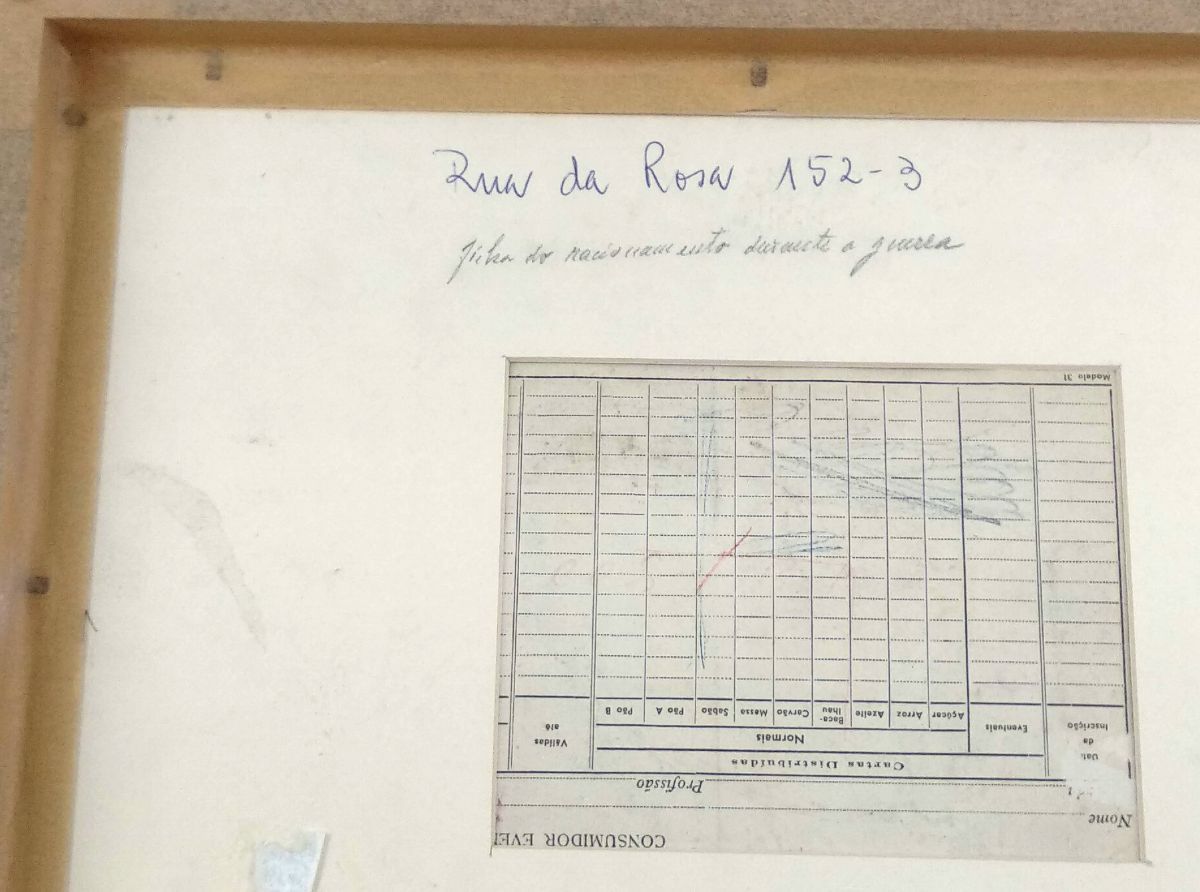 Rua da Rosa 152-3
ficha do racionamento durante a guerra
CONSUMIDOR EVE
Nome
Profissão
Cartas Distribuídas
Normais
Dat.
da
Inscrição
Eventuais
Açúcar
Arroz
Azeite
Baca-
lhau
Carvão
Massa
Sabão
Pão A
Pão B
Válidas
até
Modelo 31